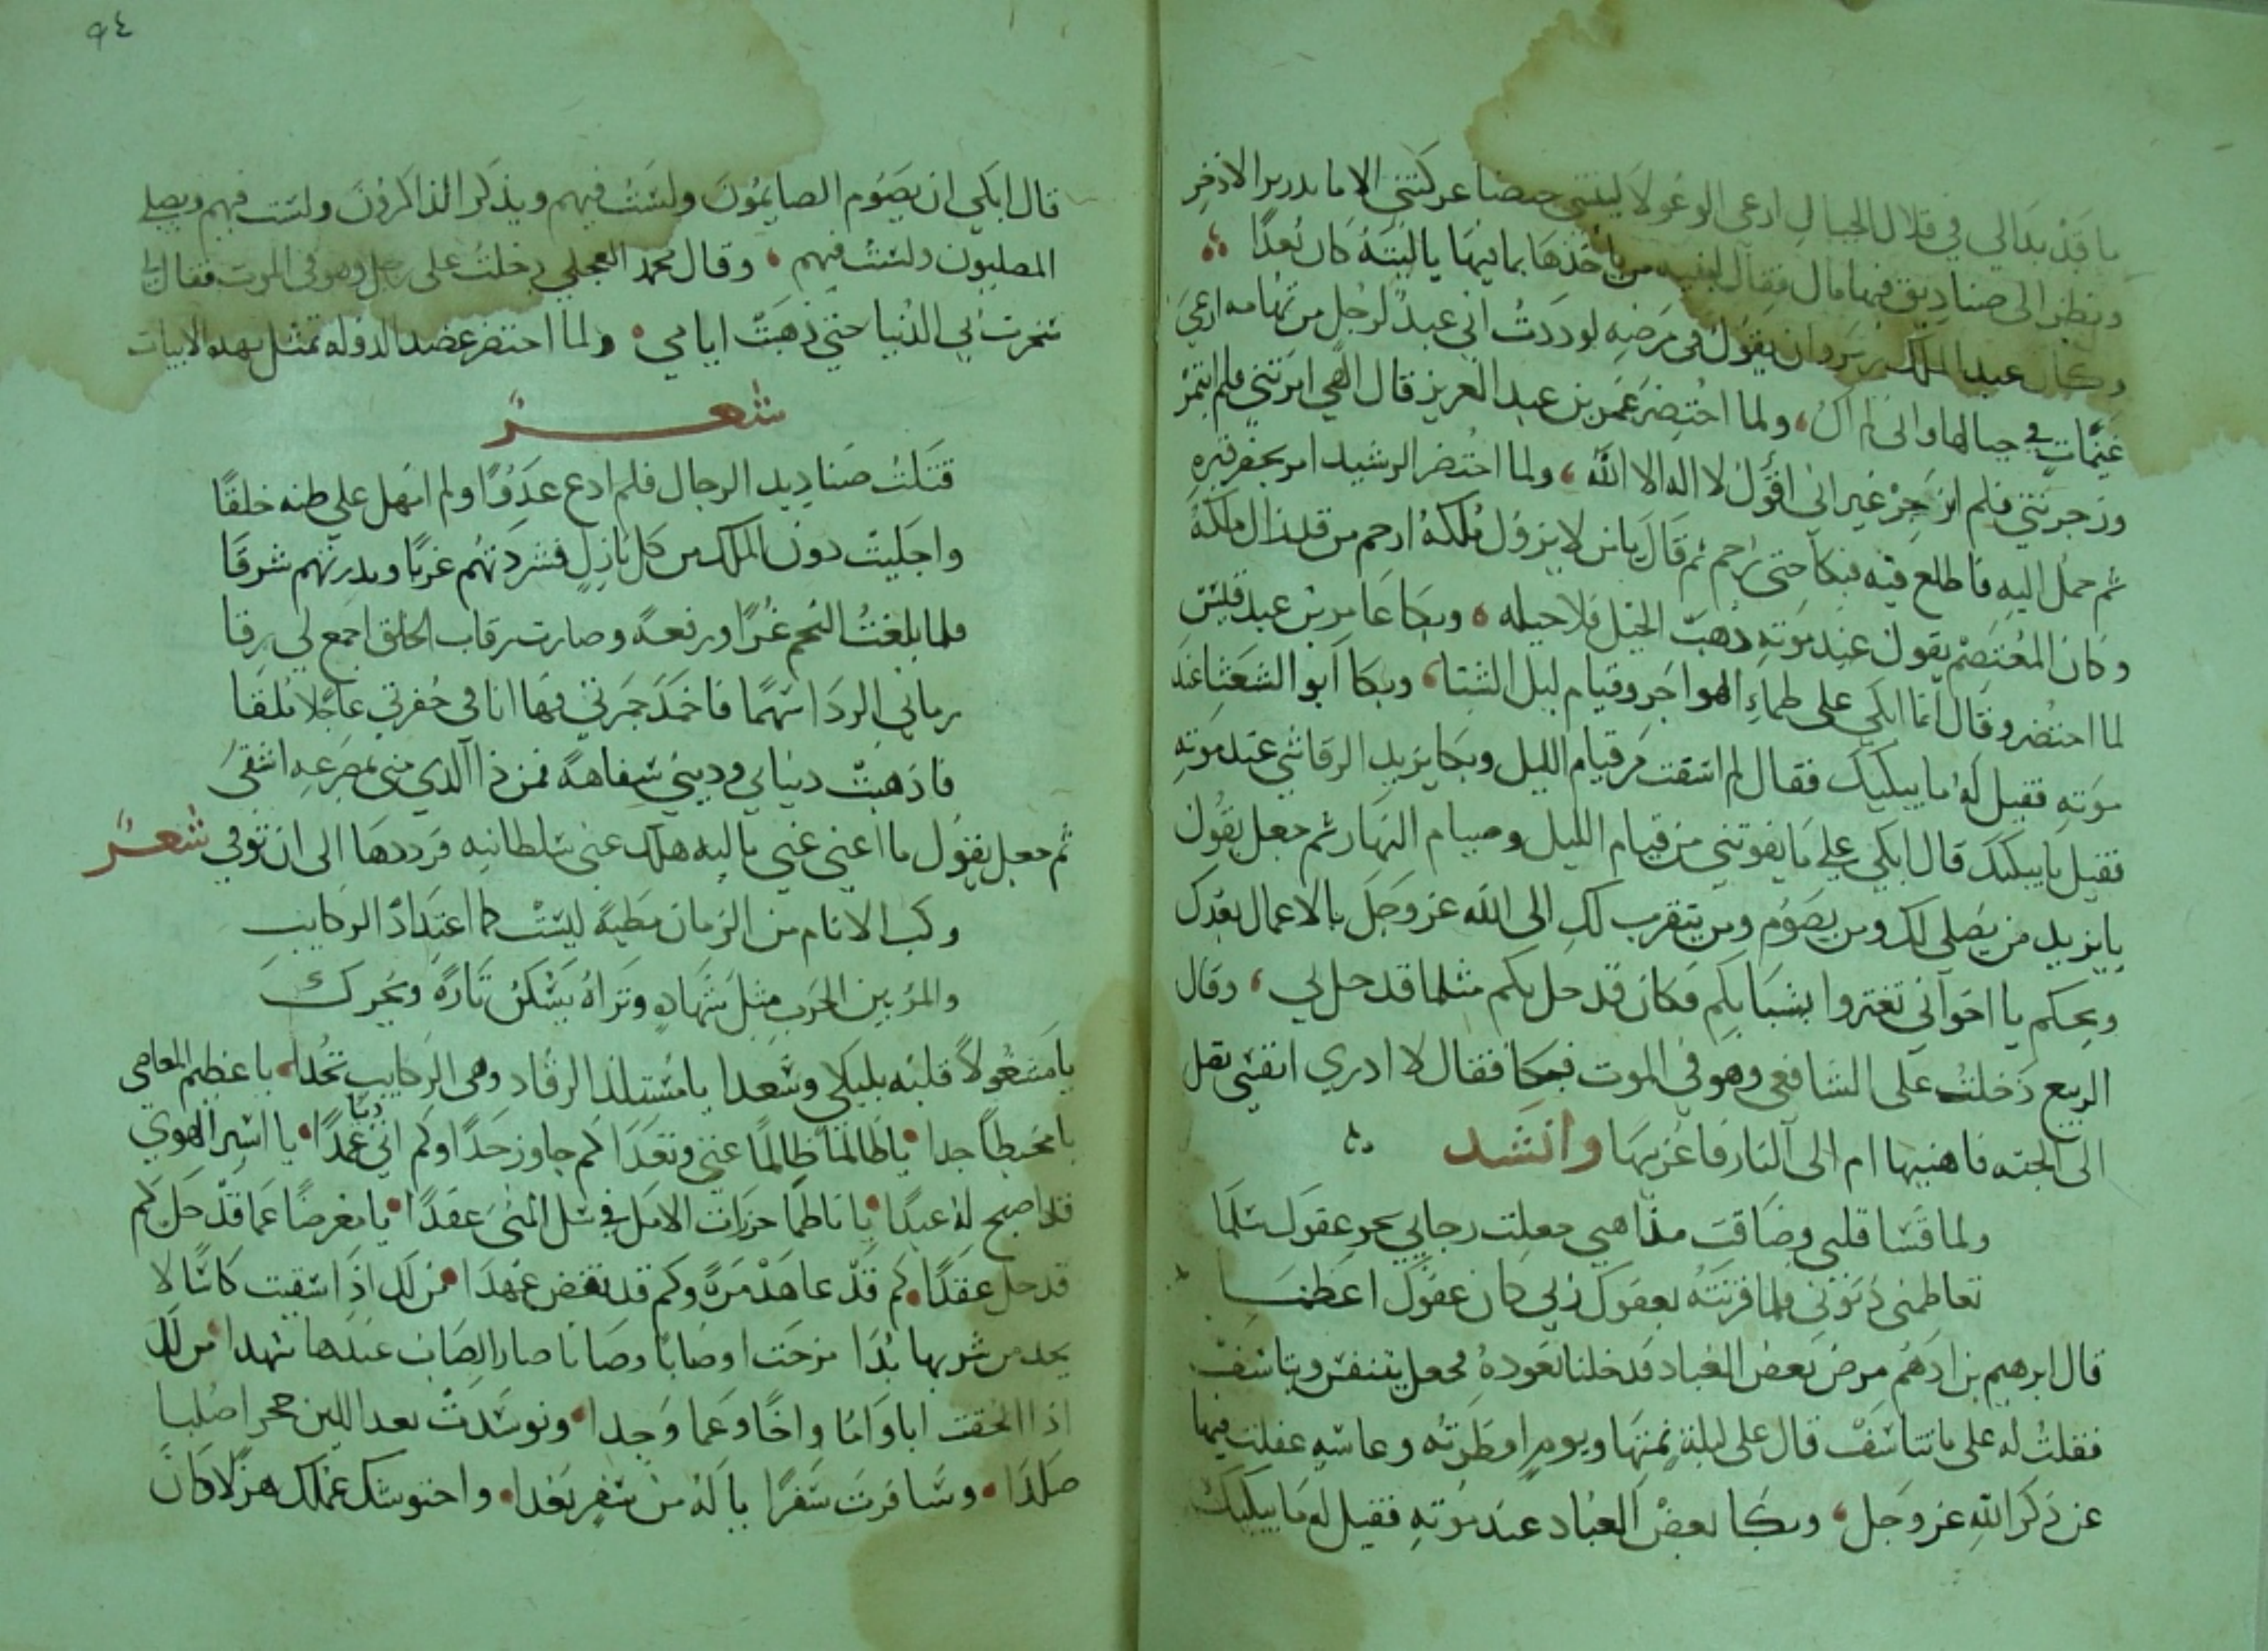 ما قد بدا لي في قلال الجبال ارعى الوعولا ليتني حيضا عركتني الاما بدرير الاذخر
ونظر الى صناديق فيها مال فقال لبنيه من ياخذها بما فيها يا ليته كان بعدا
وكان عبد الملك بن مروان يقول في مرضه لوددت اني عبد لرجل من تهامه ارعى
غنيمات في جبالها واني لم اك ولما احتضر عمر بن عبد العزيز قال الهي امرتني فلم ايتمر
وزجرتني فلم انزجر غير اني اقول لا اله الا الله ولما احتضر الرشيد امر بحفر قبره
ثم حمل اليه فاطلع فيه فبكا حتى رحم ثم قال يا من لا يزول ملكه ارحم من قد زال ملكه
وكان المعتصم يقول عند موته ذهبت الحيل فلا حيله وبكا عامر بن عبد قيس
لما احتضر وقال انما ابكي على ظماء الهواجر وقيام ليل الشتا وبكا ابو الشعثا عند
موته فقيل له ما يبكيك فقال لم اشتف من قيام الليل وبكا يزيد الرقاشي عند موته
فقيل ما يبكيك قال ابكي على ما يفوتني من قيام الليل وصيام النهار ثم جعل يقول
يا يزيد من يصلي لك ومن يصوم ومن يتقرب لك الى الله عز وجل بالاعمال بعدك
ويحكم يا اخواني تغتروا بشبابكم فكان قد حل بكم مثلما قد حل بي وقال
الربيع دخلت على الشافعي وهو في الموت فبكا فقال لا ادري انفسي تقل
الى الجنه فاهنيها ام الى النار فاعزيها وانشد
ولما قسا قلبي وضاقت مذاهبي جعلت رجايي نحو عفوك سلما
تعاظمني ذنوبي فلما قرنته بعفوك ربي كان عفوك اعظما
قال ابرهيم بن ادهم مرض بعض العباد فدخلنا نعوده فجعل يتنفس ويتاسف
فقلت له على ما تتاسف قال على ليلة نمتها ويوم افطرته وعاشيه غفلت فيها
عن ذكر الله عز وجل وبكا بعض العباد عند موته فقيل له ما يبكيك
٩٤
قال ابكي ان يصوم الصايمون ولست فيهم ويذكر الذاكرون ولست فيهم ويصلي
المصليون ولست فيهم وقال محمد العجلي دخلت على رجل وهو في الموت فقال لي
سخرت بي الدنيا حتى ذهبت ايامي ولما احتضر عضد الدوله تمثل بهده الابيات
شعر
قتلت صناديد الرجال فلم ادع عدوا ولم امهل علي ظنه خلقا
واجليت دون الملك من كل نازل فشردتهم غربا وبدرتهم شرقا
فلما بلغت النجم عزا ورفعة وصارت رقاب الخلق اجمع لي رقا
رماني الردا سهما فاخمد جمرتي فها انا في حفرتي عاجلا ملقا
فاذهبت دنيايي وديني سفاهة فمن ذا الذي مني بمصرعه اشقى
ثم جعل يقول ما اغنى عني ماليه هلك عني سلطانيه فرددها الى ان توفي شعر
ركب الانام من الزمان مطية ليست كما اعتاد الركايب
والمرء بين الحرب مثل شهاده وتراه يسكن تارة ويحرك
يا مشغولا قلبه بليلى وسعدا يا مستلذ الرقاد وهى الركايب تحدا يا عظيم المعاصي
يا مخطيا جدا يا ظالما ظالما عتى وتعدا كم جاوز حدا وكم اتى ذنبا عمدا يا اسير الهوي
قد اصبح له عبدا يا ناظما خرزات الامل في سلك المنى عقدا يا معرضا عما قد حل كم
قد حل عقدا كم قد عاهد مرة وكم قد نقض عهدا من لك اذا سقيت كاسا لا
يجد من شربها بدا مزجت اوصابا وصابا صار الصاب عندها شهدا من لك
اذا لحقت ابا واما واخا وعما وجدا وتوسدت بعد اللين حجرا صلبا
صلدا وسافرت سفرا يا له من سفر بعدا واحتوشك عملك هزلا كان